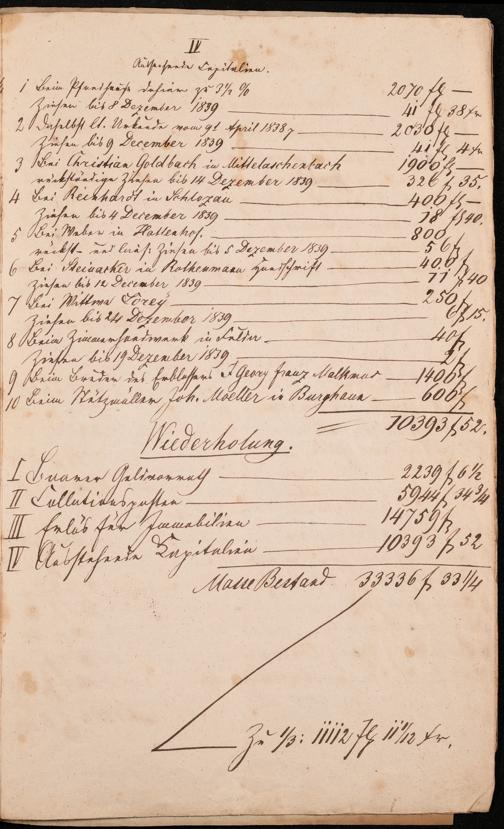 IV
Ausstehende Capitalien.
1 Beim Pfandhause dahier zu 3½ % 2070 fl —
Zinsen bis 8 Dezember 1839 — 41 fl 38 xr
2 Daselbst lt. Urkunde vom 9t April 1838 2030 fl —
Zinsen bis 9 December 1839 — 41 fl 4 xr
3 Bei Christian Goldbach in Mittelaschenbach 1900 fl
rückständige Zinsen bis 14 Dezember 1839 — 326 f 35.
4 Bei Reinhardt in Schlozau — 400 f —
Zinsen bis 4 December 1839 — 18 f 40.
5 Bei Weber in Hattenhof. — 800
rückst- und lauf: Zinsen bis 5 Dezember 1839 — 56 f
6 Bei Steinacker in Rothenmann Handschrift — 400 f
Zinsen bis 12 December 1839 — 77 f 40
7 Bei Wittwe — 250 f
Zinsen bis 24 Dezember 1839 — 6 f 15.
8 Beim Zimmerhandwerk in Fulda — 40 f
Zinsen bis 19 Dezember 1839 — 2 f
9 Beim Bruder des Erblassers Georg Franz Malkmus — 1400 f
10 Beim Joh. Moeller in Burghaun — 600 f
10393 f 52.
Wiederholung.
I Baarer Geldvorrath — 2239 f 6½
II Collationsposten — 5944 f 34¾
III Erlös für Immobilien — 14759 f
IV Ausstehende Kapitalien — 10393 f 52
Masse Bestand 33336 f 33¼
Zu ⅓: 11112 fl 11 1/12 xr.